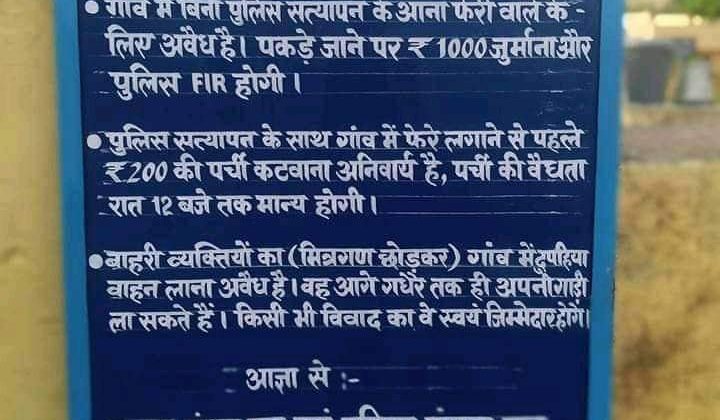 • गांव में बिना पुलिस सत्यापन के आना फेरी वाले के
लिए अवैध है। पकड़े जाने पर ₹ 1000 जुर्माना और
पुलिस FIR होगी।
• पुलिस सत्यापन के साथ गांव में फेरे लगाने से पहले
₹200 की पर्ची कटवाना अनिवार्य है, पर्ची की वैधता
रात 12 बजे तक मान्य होगी।
• बाहरी व्यक्तियों का (मित्रगण छोड़कर) गांव में दुपहिया
वाहन लाना अवैध है। वह आगे गधेरे तक ही अपनी गाड़ी
ला सकते हैं। किसी भी विवाद का वे स्वयं जिम्मेदार होंगे।
आज्ञा से :-